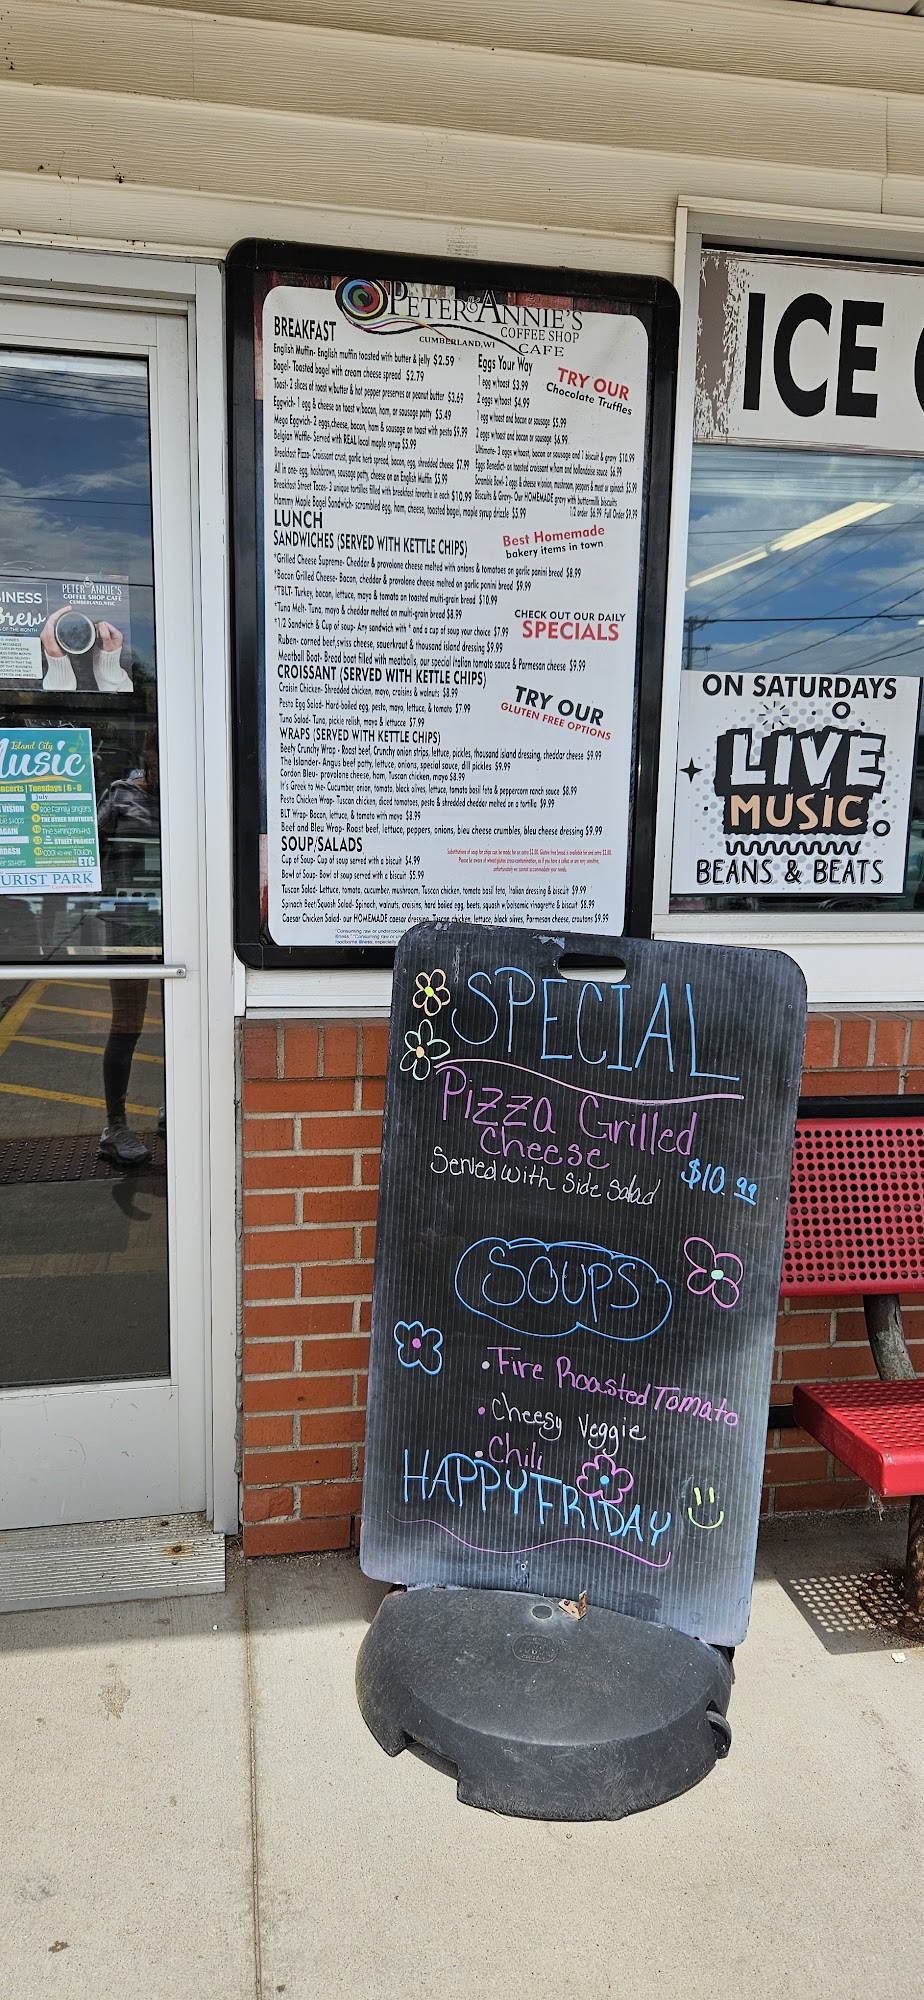 PETER & ANNIE'S
COFFEE SHOP
CUMBERLAND, WI
CAFE
BREAKFAST
English Muffin- English muffin toasted with butter & jelly $2.59
Bagel- Toasted bagel with cream cheese spread $2.79
Toast- 2 slices of toast w/butter & hot pepper preserves or peanut butter $3.69
Eggwich- 1 egg & cheese on toast w/bacon, ham, or sausage patty $5.49
Mega Eggwich- 2 eggs, cheese, bacon, ham & sausage on toast with pesto $9.99
Belgian Waffle- Served with REAL local maple syrup $5.99
Breakfast Pizza- Croissant crust, garlic herb spread, bacon, egg, shredded cheese $7.99
All in one- egg, hashbrown, sausage patty, cheese on an English Muffin $5.99
Breakfast Street Tacos- 3 unique tortillas filled with breakfast favorite in each $10.99
Hammy Maple Bagel Sandwich- scrambled egg, ham, cheese, toasted bagel, maple syrup drizzle $5.99
Eggs Your Way
1 egg w/toast $3.99
2 eggs w/toast $4.99
1 egg w/toast and bacon or sausage $5.99
2 eggs w/toast and bacon or sausage $6.99
Ultimate- 3 eggs w/toast, bacon or sausage and 1 biscuit & gravy $10.99
Eggs Benedict- on toasted croissant w/ham and hollandaise sauce $6.99
Scramble Bowl- 2 eggs & cheese w/onion, mushroom, peppers & meat or spinach $5.99
Biscuits & Gravy- Our HOMEMADE gravy with buttermilk biscuits
1/2 order $6.99 Full Order $9.99
TRY OUR
Chocolate Truffles
LUNCH
SANDWICHES (SERVED WITH KETTLE CHIPS)
Best Homemade
bakery items in town
*Grilled Cheese Supreme- Cheddar & provolone cheese melted with onions & tomatoes on garlic panini bread $8.99
*Bacon Grilled Cheese- Bacon, cheddar & provolone cheese melted on garlic panini bread $9.99
*TBLT- Turkey, bacon, lettuce, mayo & tomato on toasted multi-grain bread $10.99
*Tuna Melt- Tuna, mayo & cheddar melted on multi-grain bread $8.99
*1/2 Sandwich & Cup of soup- Any sandwich with * and a cup of soup your choice $7.99
Ruben- corned beef, swiss cheese, sauerkraut & thousand island dressing $9.99
Meatball Boat- Bread boat filled with meatballs, our special italian tomato sauce & Parmesan cheese $9.99
CHECK OUT OUR DAILY
SPECIALS
CROISSANT (SERVED WITH KETTLE CHIPS)
Craisin Chicken- Shredded chicken, mayo, craisins & walnuts $8.99
Pesto Egg Salad- Hard-boiled egg, pesto, mayo, lettuce, & tomato $7.99
Tuna Salad- Tuna, pickle relish, mayo & lettucce $7.99
TRY OUR
GLUTEN FREE OPTIONS
WRAPS (SERVED WITH KETTLE CHIPS)
Beefy Crunchy Wrap - Roast beef, Crunchy onion strips, lettuce, pickles, thousand island dressing, cheddar cheese $9.99
The Islander- Angus beef patty, lettuce, onions, special sauce, dill pickles $9.99
Cordon Bleu- provolone cheese, ham, Tuscan chicken, mayo $8.99
It's Greek to Me- Cucumber, onion, tomato, black olives, lettuce, tomato basil feta & peppercorn ranch sauce $8.99
Pesto Chicken Wrap- Tuscan chicken, diced tomatoes, pesto & shredded cheddar melted on a tortilla $9.99
BLT Wrap- Bacon, lettuce, & tomato with mayo $8.99
Beef and Bleu Wrap- Roast beef, lettuce, peppers, onions, bleu cheese crumbles, bleu cheese dressing $9.99
SOUP/SALADS
Cup of Soup- Cup of soup served with a biscuit $4.99
Bowl of Soup- Bowl of soup served with a biscuit $5.99
Tuscan Salad- Lettuce, tomato, cucumber, mushroom, Tuscan chicken, tomato basil feta, Italian dressing & biscuit $9.99
Spinach Beet/Squash Salad- Spinach, walnuts, craisins, hard boiled egg, beets, squash w/balsamic vinagrette & biscuit $8.99
Caesar Chicken Salad- our HOMEMADE caesar dressing, Tuscan chicken, lettuce, black olives, Parmesan cheese, croutons $9.99
ICE
ON SATURDAYS
LIVE
MUSIC
BEANS & BEATS
INESS
Brew
OF THE MONTH
PETER & ANNIE'S
COFFEE SHOP CAFE
CUMBERLAND, WISC
Island City
Music
ncerts | Tuesdays | 6 - 8
July
VISION
AGAIN
The Other Brothers
The Stringsmiths
Street Project
Too the Touch
ETC
URIST PARK
SPECIAL
Pizza Grilled
Cheese
Served with side salad $10.99
SOUPS
• Fire Roasted Tomato
• Cheesy Veggie
• Chili
HAPPY FRIDAY